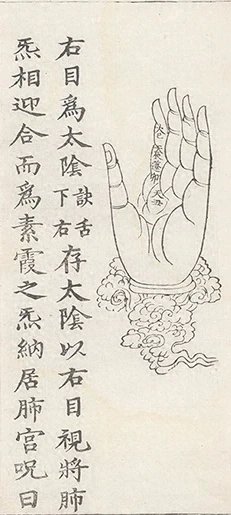 右目爲太陰訣舌下右存太陰以右目視將肺
炁相迎合而爲素霞之炁納居肺宮呪曰